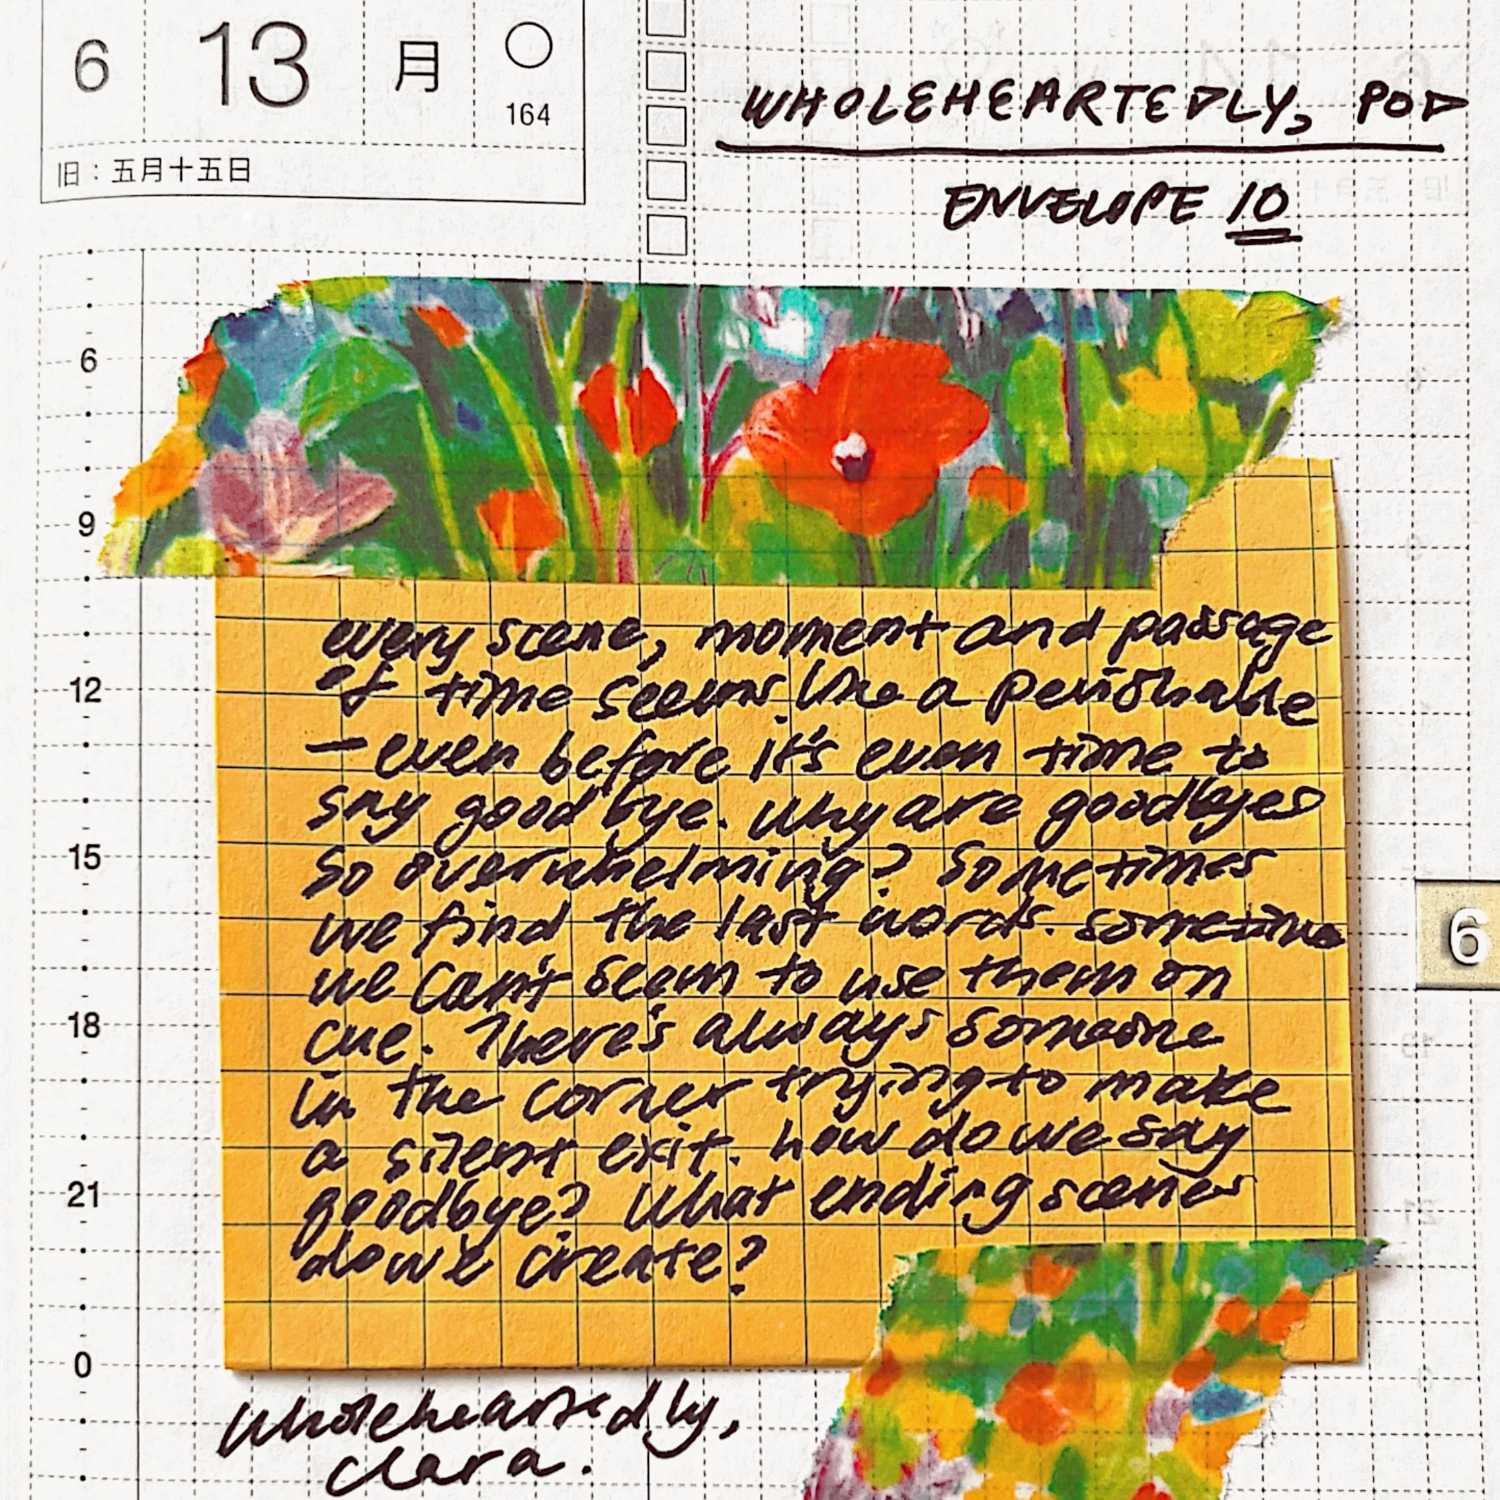 6 13 月
164
旧：五月十五日
WHOLEHEARTEDLY, POD
ENVELOPE 10
6
9
12
15
18
21
0
every scene, moment and passage
of time seems like a perishable
— even before it's even time to
say goodbye. Why are goodbyes
so overwhelming? Sometimes
we find the last words. sometimes
we can't seem to use them on
cue. There's always someone
in the corner trying to make
a silent exit. how do we say
goodbye? What ending scenes
do we create?
Wholeheartedly,
Clara.
6